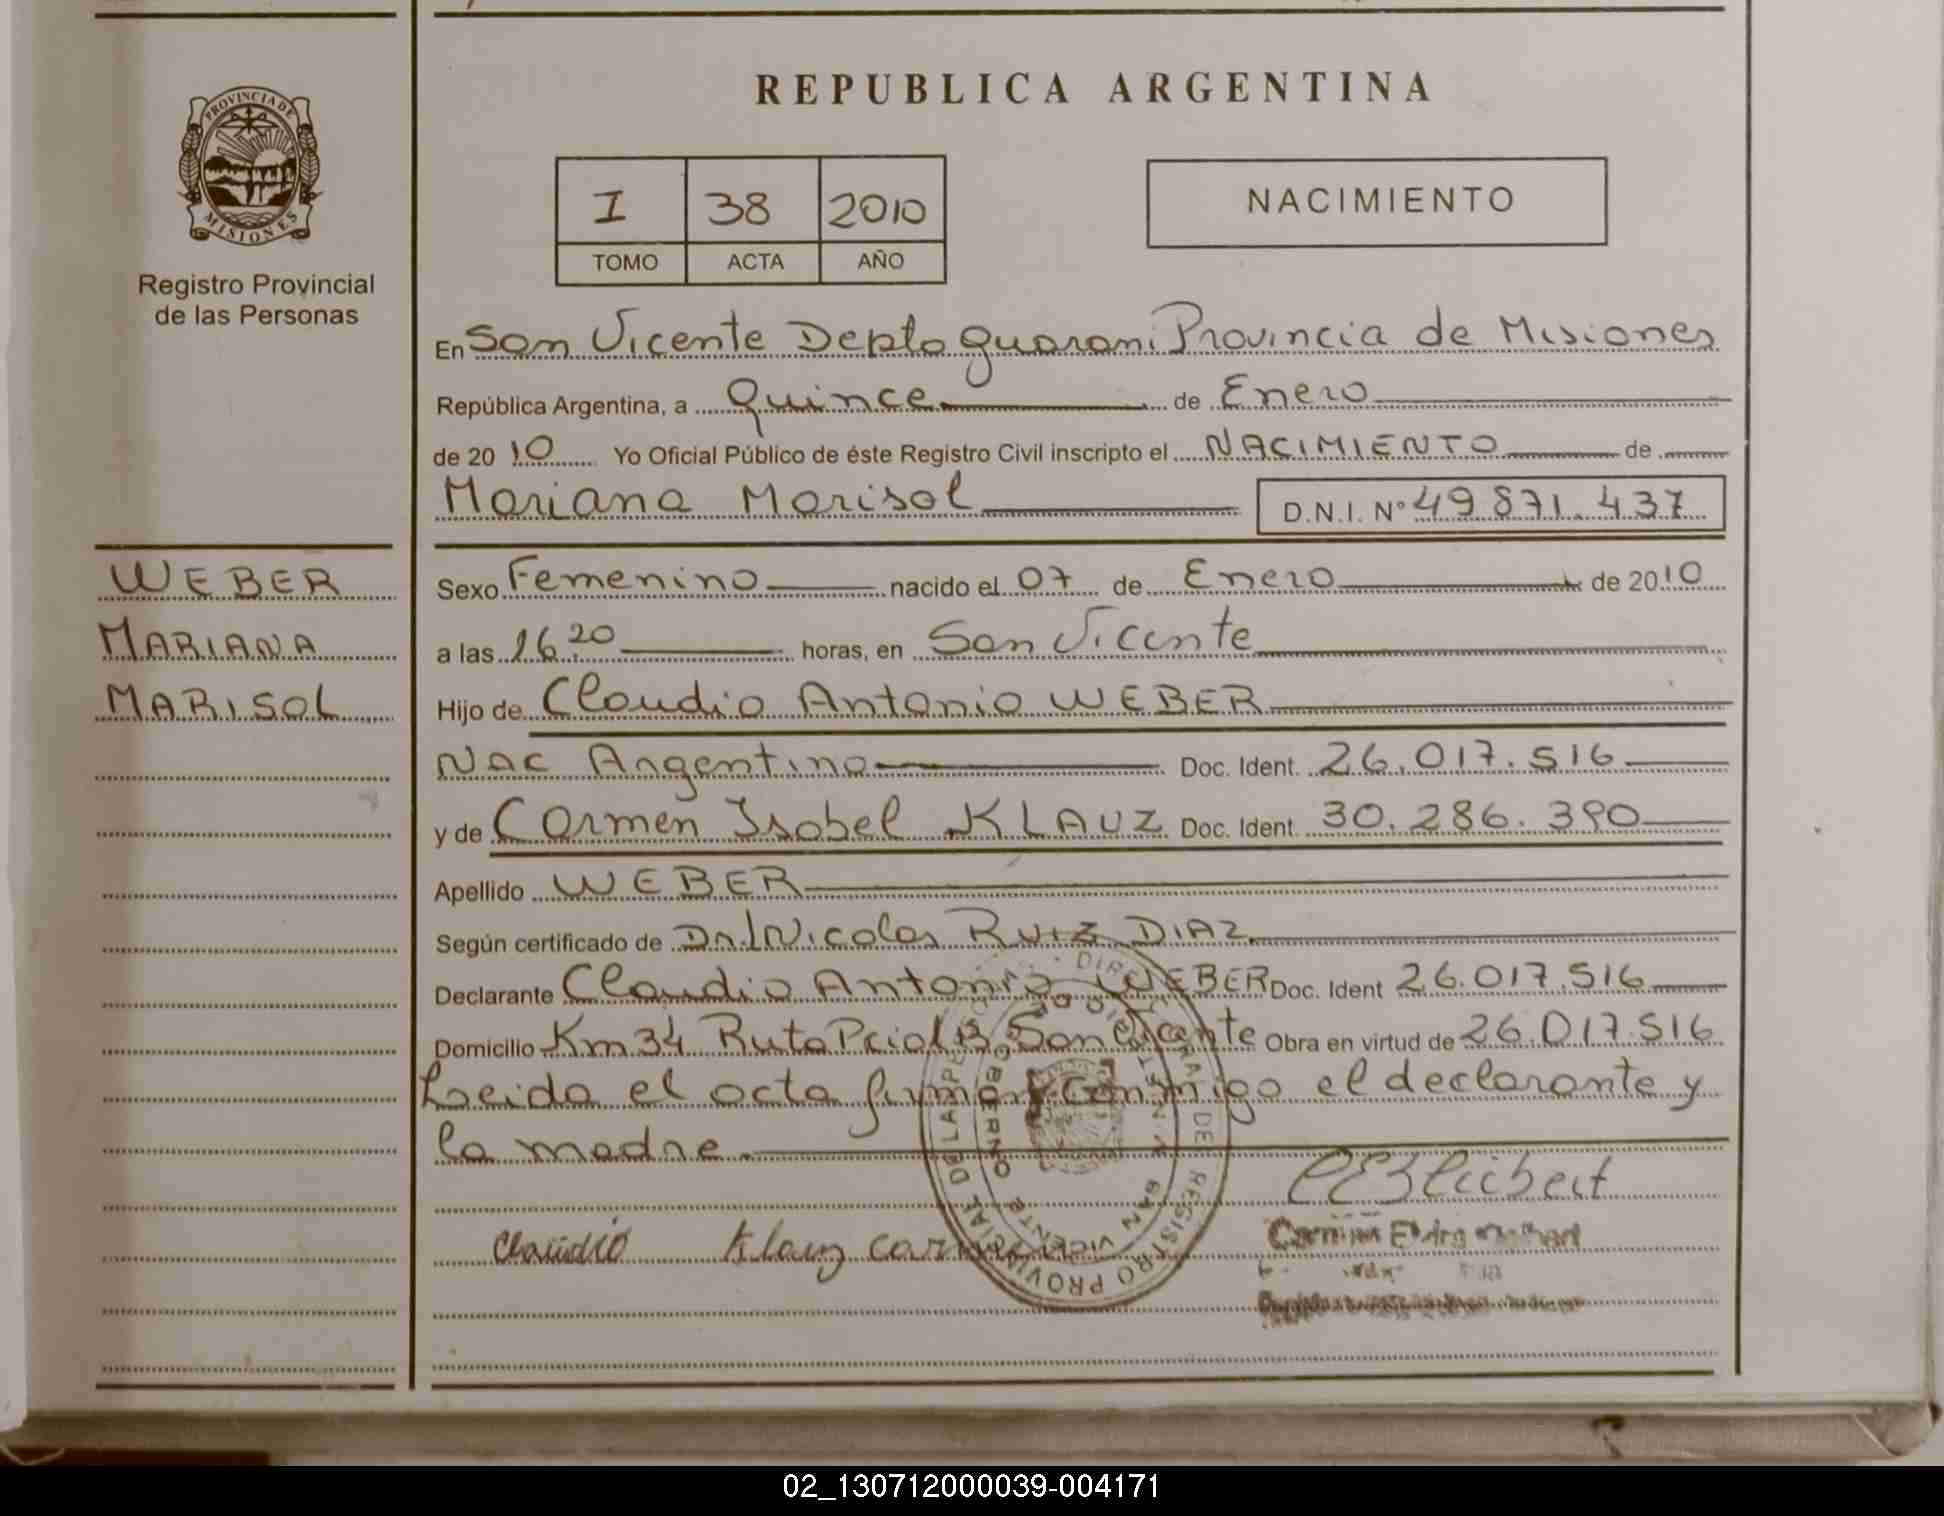 REPUBLICA ARGENTINA
PROVINCIA DE
MISIONES
Registro Provincial
de las Personas
I 38 2010
TOMO ACTA AÑO
NACIMIENTO
En San Vicente Depto Guarani Provincia de Misiones
República Argentina, a Quince de Enero
de 2010 Yo Oficial Público de éste Registro Civil inscripto el NACIMIENTO de
Mariana Marisol D.N.I. N° 49 871.437
WEBER
MARIANA
MARISOL
Sexo Femenino nacido el 07 de Enero de 2010
a las 16.20 horas, en San Vicente
Hijo de Claudio Antonio WEBER
Nac Argentino Doc. Ident. 26.017.516
y de Carmen Isabel KLAUZ Doc. Ident. 30.286.390
Apellido WEBER
Según certificado de Nicolas RUIZ DIAZ
Declarante Claudio Antonio WEBER Doc. Ident 26.017.516
Domicilio Km34 Ruta Pcial 13 San Vicente Obra en virtud de 26.017.516
Leida el acta firman conmigo el declarante y
la madre.
Claudio Klauz Carmen
SAN VICENTE
02_130712000039-004171